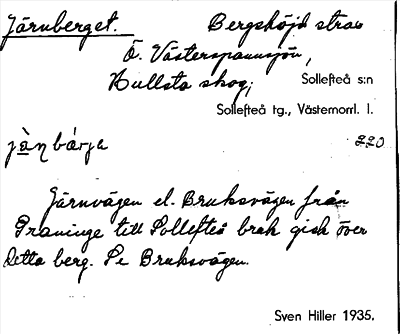 Järnberget. Bergshöjd strax
Ö. Västerspannsjön,
Hullsta skog; Sollefteå s:n
Sollefteå tg., Västernorrl. l.
jàn bárja 220
Järnvägen el. Bruksvägen från
Graninge till Sollefteå bruk gick över
detta berg. Se Bruksvägen.
Sven Hiller 1935.